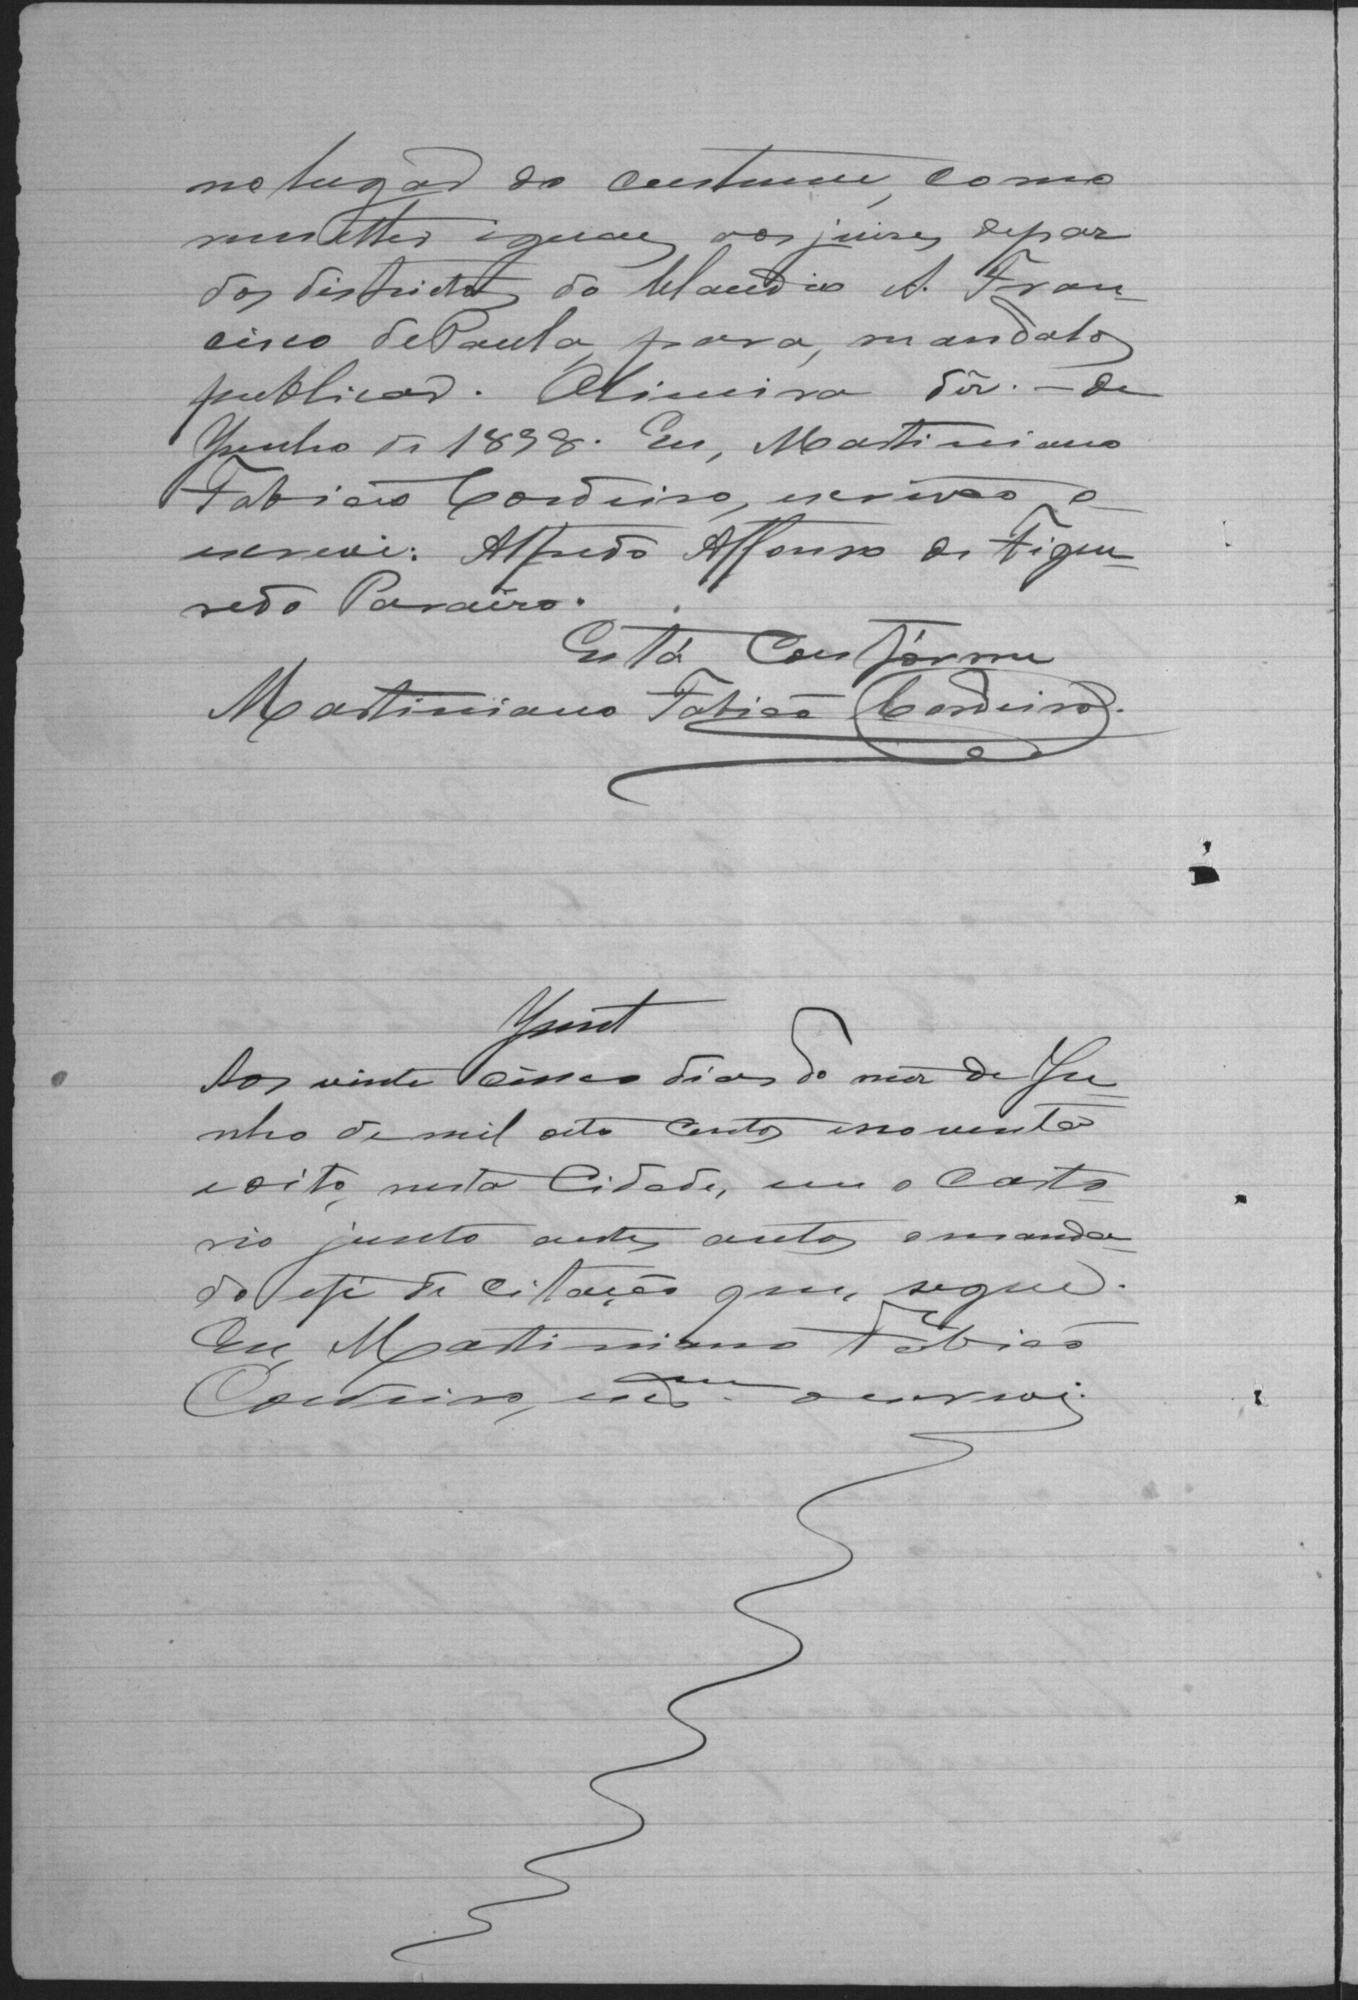 no lugar do custume, como
remetter iguaes aos juises depaz
dos districtos do Claudio S. Fran
cisco de Paula, para, mandalos
publicar. Oliveira dôr. — de
Junho de 1898. Eu, Martiniano
Fabricio Cordeiro, escrivão o
escrevi. Alfredo Affonso de Figue
redo Paraizo.
Está Confórme
Martiniano Fabicio Cordeiro.
Junt
Aos vinte cinco dias do mez de Ju
nho de mil oito centos enoventa
eoito, nesta Cidade, em o Carto
rio junto aestes autos omanda
do efé de citação que, segue.
Eu, Martiniano Fabicio
Cordeiro, escam. o escrevi.